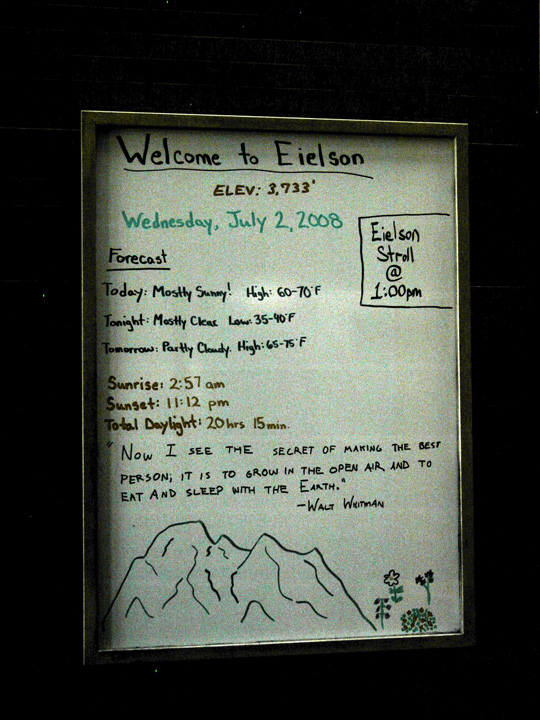 Welcome to Eielson
ELEV: 3,733'
Wednesday, July 2, 2008
Eielson
Stroll
@
1:00pm
Forecast
Today: Mostly Sunny! High: 60-70°F
Tonight: Mostly Clear Low: 35-40°F
Tomorrow: Partly Cloudy. High: 65-75°F
Sunrise: 2:57 am
Sunset: 11:12 pm
Total Daylight: 20hrs 15min.
"Now I SEE THE SECRET OF MAKING THE BEST
PERSON; IT IS TO GROW IN THE OPEN AIR AND TO
EAT AND SLEEP WITH THE EARTH."
-WALT WHITMAN